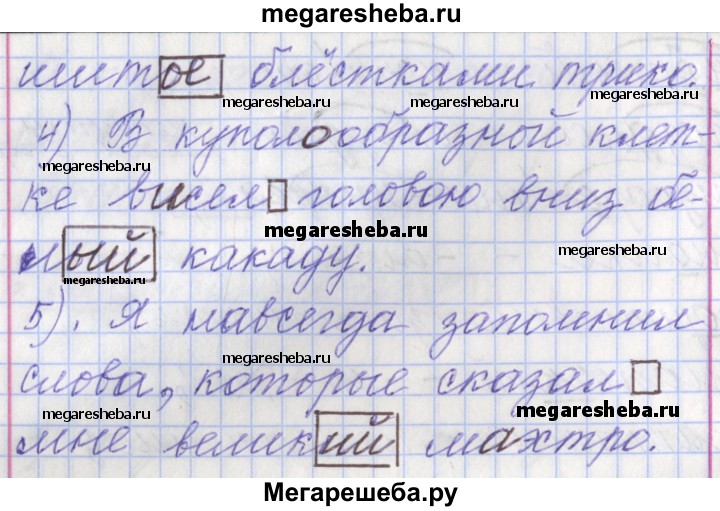 megaresheba.ru
шитое блёстками трико.
megaresheba.ru megaresheba.ru
4) В куполообразной клет-
megaresheba.ru megaresheba.ru
ке висел головою вниз бе-
megaresheba.ru
megaresheba.ru
лый какаду.
megaresheba.ru
5). Я навсегда запомнил
megaresheba.ru megaresheba.ru
слова, которые сказал
megaresheba.ru megaresheba.ru
мне великий маэстро.
megaresheba.ru
Мегарешеба.ру